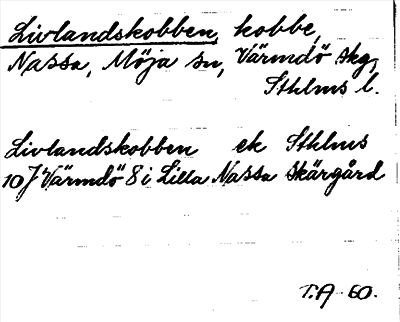 Livlandskobben, kobbe,
Nassa, Möja sn, Värmdö skg,
Sthlms l.
Livlandskobben ek Sthlms
10 J Värmdö 8 i Lilla Nassa skärgård
T.A-60.